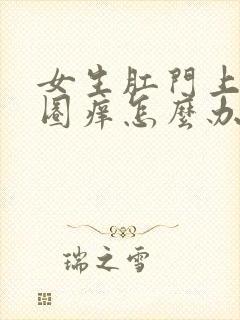 女生肛門上
圈痒怎麼办
瑞之雪